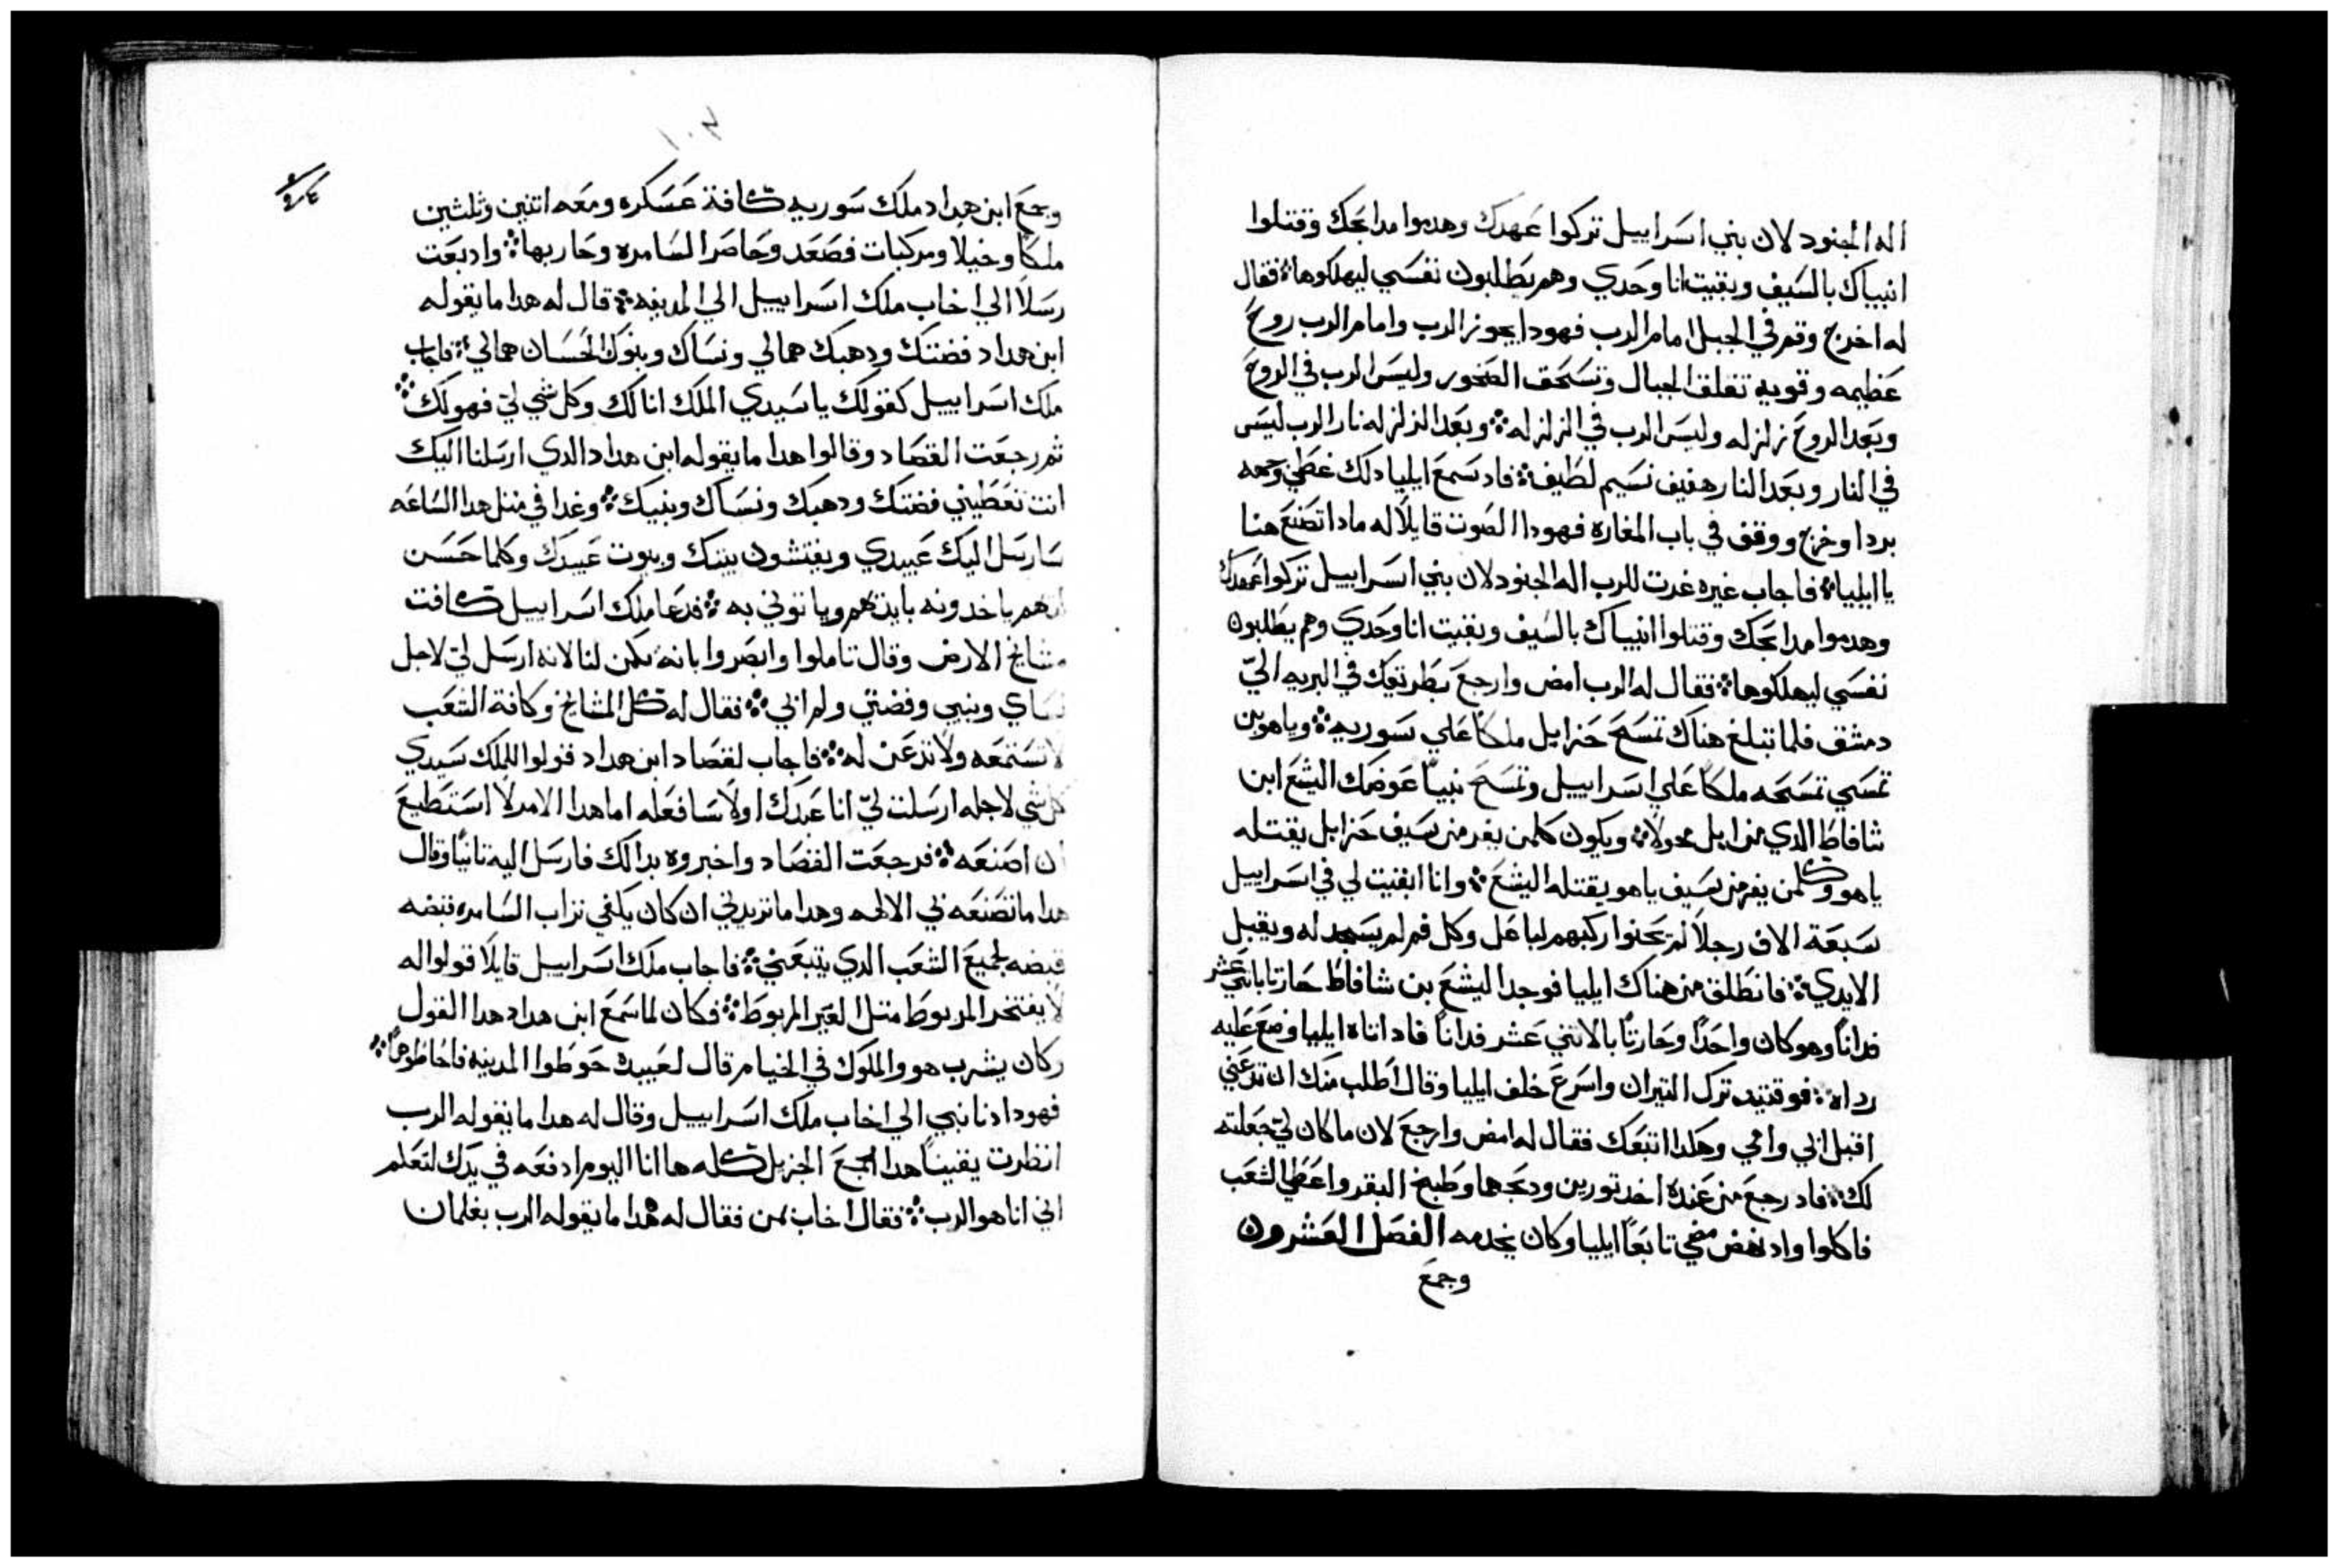 اله الجنود لان بني اسراييل تركوا عهدك وهدموا مدابحك وقتلوا
انبياك بالسيف وبقيت انا وحدي وهم يطلبون نفسي ليهلكوها فقال
له اخرج وقم في الجبل امام الرب فهودا يجوز الرب وامام الرب روح
عظيمه وقويه تفلق الجبال وتسحق الصخور وليس الرب في الروح
وبعد الروح زلزله وليس الرب في الزلزله وبعد الزلزله نار الرب ليس
في النار وبعد النار هفيف نسيم لطيف فاد سمع ايليا دلك غطي وجهه
بردا وخرج ووقف في باب المغاره فهودا الصوت قايلا له مادا تصنع هنا
يا ايليا فاجاب غيره غرت للرب اله الجنود لان بني اسراييل تركوا عهدك
وهدموا مدابحك وقتلوا انبياك بالسيف وبقيت انا وحدي وهم يطلبون
نفسي ليهلكوها فقال له الرب امض وارجع بطريقك في البريه الي
دمشق فلما تبلغ هناك تمسح حزايل ملكا علي سوريه وياهو بن
نمسي تمسحه ملكا علي اسراييل وتمسح نبيا عوضك اليشع ابن
شافاط الدي من ابل محولا ويكون كلمن يفر من سيف حزايل يقتله
ياهو وكلمن يفر من سيف ياهو يقتله اليشع وانا ابقيت لي في اسراييل
سبعة الاف رجلا لم يحنوا ركبهم لباعل وكل فم لم يسجد له ويقبل
الايدي فانطلق من هناك ايليا فوجد اليشع بن شافاط حارتا باتني عشر
فدانا وهو كان واحدا وحارتا بالاتني عشر فدانا فاد اتاه ايليا وضع عليه
رداه فوقتيد ترك التيران واسرع خلف ايليا وقال اطلب منك ان تدعني
اقبل ابي وامي وهكدا اتبعك فقال له امض وارجع لان ما كان لي جعلته
لك فاد رجع من عنده اخد تورين ودبحهما وطبخ البقر واعطي الشعب
فاكلوا واد نهض مضي تابعا ايليا وكان يخدمه الفصل العشرون
وجمع
١٠٢
وجمع ابن هداد ملك سوريه كافة عسكره ومعه اتنين وثلثين
ملكا وخيلا ومركبات فصعد وحاصر السامره وحاربها واد بعت
رسلا الي اخاب ملك اسراييل الي المدينه قال له هدا ما يقوله
ابن هداد فضتك ودهبك هما لي ونساك وبنوك الحسان هما لي فاجاب
ملك اسراييل كقولك يا سيدي الملك انا لك وكل شي لي فهو لك
ثم رجعت القصاد وقالوا هدا ما يقوله ابن هداد الدي ارسلنا اليك
انت تعطيني فضتك ودهبك ونساك وبنيك وغدا في متل هدا الساعه
سارسل اليك عبيدي ويفتشون بيتك وبيوت عبيدك وكلما حسن
ياخدونه بايديهم وياتوني به فدعا ملك اسراييل كافت
مشايخ الارض وقال تاملوا وابصروا بانه يكمن لنا لانه ارسل لي لاجل
نساي وبنيي وفضتي ولم ابي فقال له كل المشايخ وكافة الشعب
لا تستمعه ولا تدعن له فاجاب لقصاد ابن هداد قولوا للملك سيدي
كل شي لاجله ارسلت لي انا عبدك اولا سافعله اما هدا الامر لا استطيع
ان اصنعه فرجعت القصاد واخبروه بدالك فارسل اليه تانيا وقال
هدا ما تصنعه بي الالهه وهدا ما تزيدني ان كان يكفي تراب السامره قبضه
قبضه لجميع الشعب الدي يتبعني فاجاب ملك اسراييل قايلا قولوا له
لا يفتخر المربوط متل الغير المربوط فكان لما سمع ابن هداد هدا القول
وكان يشرب هو والملوك في الخيام قال لعبيده حوطوا المدينه فاحاطوها
فهودا دنا نبي الي اخاب ملك اسراييل وقال له هدا ما يقوله الرب
انظرت يقينا هدا الجمع الجزيل كله ها انا اليوم ادفعه في يدك لتعلم
اني انا هو الرب فقال اخاب بمن فقال له هدا ما يقوله الرب بغلمان